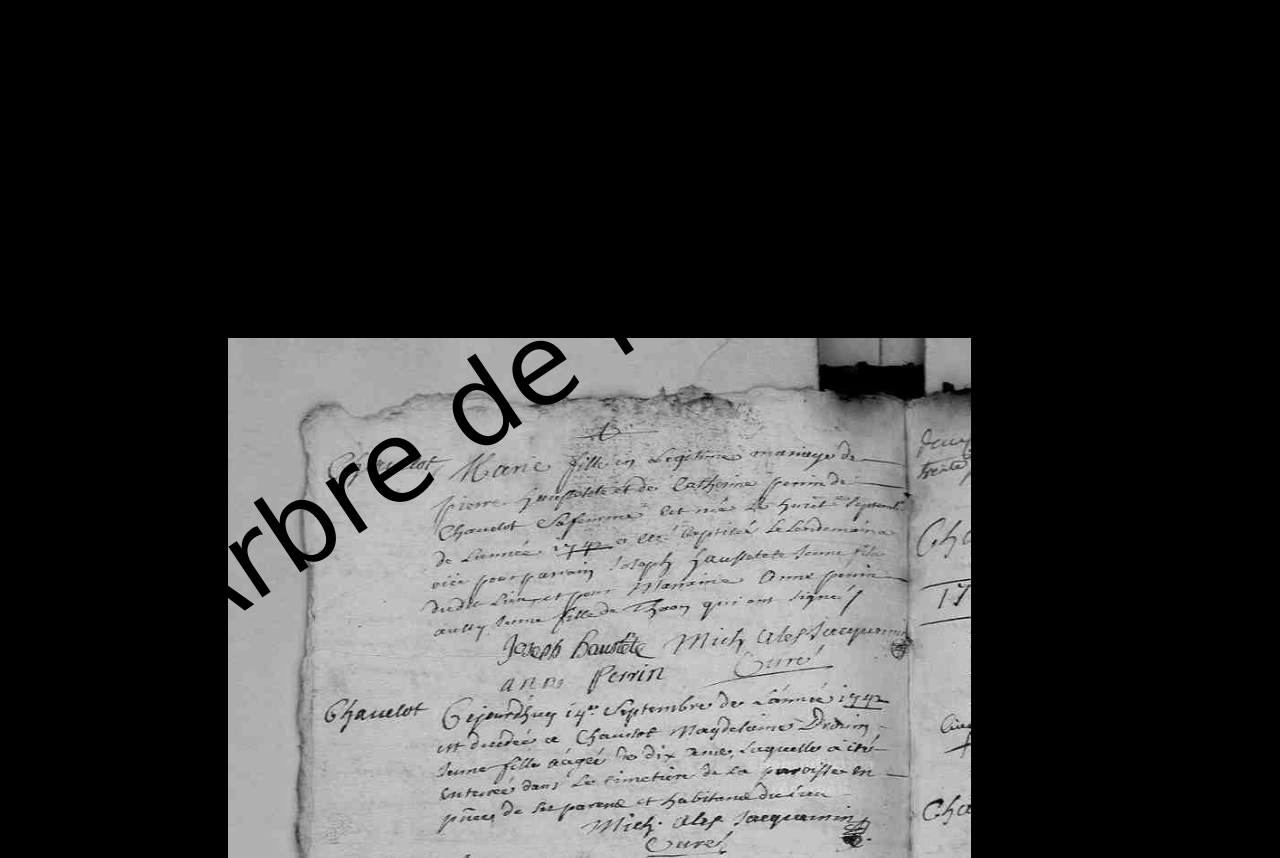 Arbre de
Chavelot Marie fille en Legitime mariage de
pierre haustete et de Catherine perrin de
Chavelot Sa femme est née Le huict Septemb.
de L'année 1742 a été baptisée Le Lendemain a
eüe pour parrain Joseph haustete Jeune fils
dudit Lieu, et pour Marraine Anne perrin
aussy Jeune fille de Thaon qui ont signé
Joseph haustete Mich Alex Jacquemin
ann Perrin Curé
Chavelot Cejourdhuy 14e Septembre de L'année 1742
est décédée a Chavelot Magdelaine Drouin
Jeune fille aagée de dix ans, Laquelle a été
enterée dans Le cimetiere de La paroisse en
pñce de ses parens et habitans du Lieu
Mich. Alex Jacquemin
Curé
Cha
17
Cha